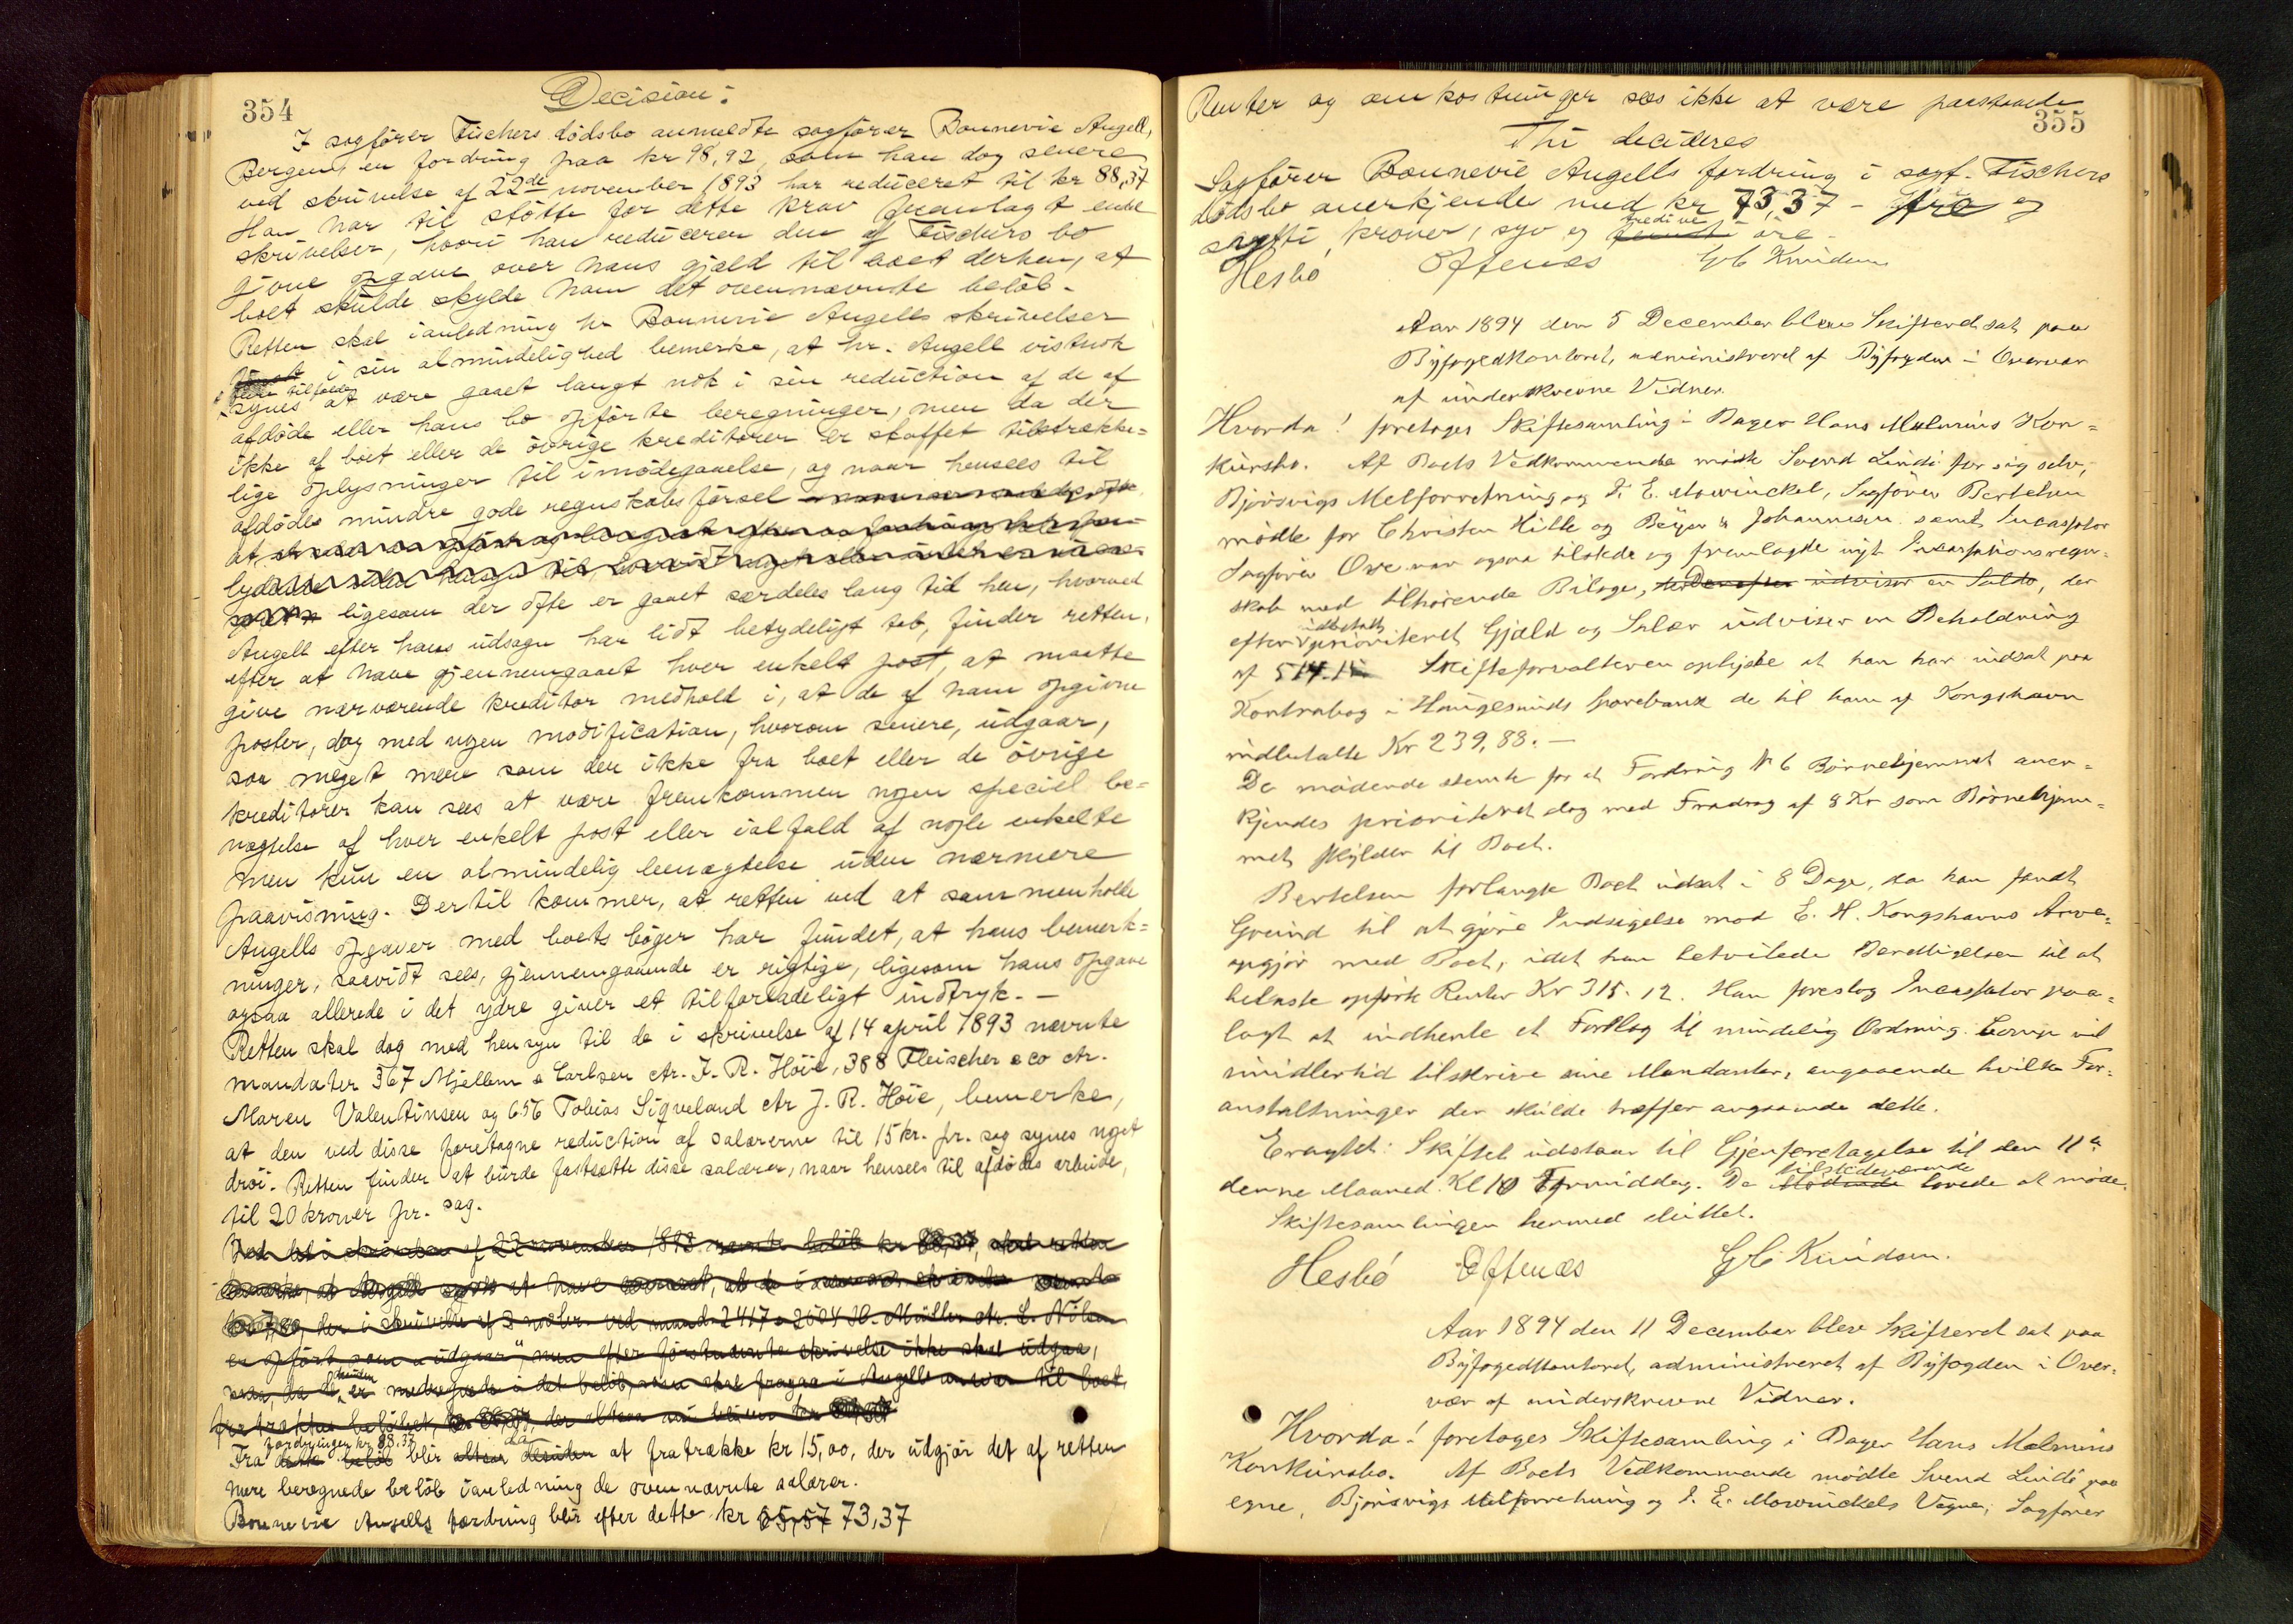 354
Decision:
I sagfører Fischers dödsbo anmeldte sagfører Bonnevie Angell,
Bergen, en fordring paa kr 98,92, som han dog senere
ved skrivelse af 22de november 1893 har reduceret til kr 88,37
Han har til stötte for dette krav fremlagt endel
skrivelser, hvori han reducerer den af Fischers bo
givne opgave over hans gjæld til boet derhen, at
boet skulde skylde ham det ovennævnte beløb.
Retten skal ianledning hr Bonnevie Angells skrivelser
i sin almindelighed bemerke, at hr. Angell vistnok
i flere tilfælde
synes at være gaaet langt nok i sin reduction af de af
afdøde eller hans bo opførte beregninger, men da der
ikke af boet eller de övrige kreditorer er skaffet tilstrække-
lige oplysninger til imödegaaelse, og naar hensees til
afdödes mindre gode regnskabsförsel
at
ligesom der ofte er gaaet særdeles lang tid hen, hvorved
Angell efter hans udsagn har lidt betydeligt tab, finder retten,
efter at have gjennemgaaet hver enkelt post, at maatte
give nærværende kreditor medhold i, at de af ham opgivne
poster, dog med nogen modification, hvorom senere, udgaar,
saa meget mere som der ikke fra boet eller de övrige
kreditorer kan sees at være fremkommen nogen speciel be-
nægtelse af hver enkelt post eller ialfald af nogle enkelte
men kun en almindelig benægtelse uden nærmere
paavisning. Dertil kommer, at retten ved at sammenholde
Angells opgaver med boets böger har fundet, at hans bemerk-
ninger, saavidt sees, gjennemgaaende er rigtige, ligesom hans opgave
ogsaa allerede i det ydre giver et tilforladeligt indtryk. —
Retten skal dog med hensyn til de i skrivelse af 14 april 1893 nævnte
mandater 367 Mjellem & Carlsen ctr. J. R. Höie, 388 Fleischer & co ctr.
Maren Valentinsen og 656 Tobias Sigveland ctr J. R. Höie, bemerke,
at den ved disse foretagne reduction af salærerne til 15 kr. pr. sag synes noget
dröi. Retten finder at burde fastsætte disse salærer, naar hensees til afdödes arbeide,
til 20 kroner pr. sag.
Ved det i skrivelse af 22 november 1893 nævnte beløb kr 88,37, skal retten
bemerke, at Angell synes at have
der i skrivelse af 2 novbr. ved mand. 2417 & 2604 Müller ctr. L. Nilsen
er opfört som "udgaar", men efter förstnævnte skrivelse ikke skal udgaa,
medregnede i det beløb, som skal fragaa i Angells ansvar til boet,
fordringen kr 88.37 da
Fra dette beløb blir altsaa at fratrække kr 15,00, der udgjör det af retten
mere beregnede beløb ianledning de ovennævnte salærer.
Bonnevie Angells fordring blir efter dette kr 73,37
355
Renter og omkostninger sees ikke at være paastaaede
Thi decideres
Sagfører Bonnevie Angells fordring i sagf. Fischers
dödsbo anerkjendes med kr 73,37 - tre og
tredive
sytti kroner, syv og öre -
Hesbö Offenæs G C Knudsen
Aar 1894 den 5 December blev Skifteret sat paa
Byfogedkontoret, administreret af Byfogden i Overvær
af underskrevne Vidner.
Hvorda! foretoges Skiftesamling i Bager Hans Malmins Kon-
kursbo. Af Boets Vedkommende mödte Svend Lindö for sig selv,
Björsvigs Melforretning og J. E. Mowinckel, Sagfører Bertelsen
mödte for Christen Hille og Beyer & Johannesen samt Incassator
Sagfører Owe var ogsaa tilstede og fremlagde nyt Incassationsregn-
skab med tilhørende Bilage, Derefter udviser en Saldo, der
indbetalt
efter prioriteret Gjæld og Salær udviser en Beholdning
af 514.15 Skifteforvalteren oplyste at han har indsat paa
Kontrabog i Haugesunds Sparebank de til ham af Kongshavn
indbetalte Kr 239,88. —
De mödende stemte for at Fordring N 6 Börnehjemmet aner-
kjendes prioriteret dog med Fradrag af 8 Kr som Börnehjem-
met skylder til Boet.
Bertelsen forlangte Boet udsat i 8 Dage, da han fandt
Grund til at gjøre Indsigelse mod E. H. Kongshavns Arve-
opgjör med Boet, idet han betvilede Berettigelsen til at
belaste opførte Renter Kr 315.12. Han foreslog Incassator paa-
lagt at indhente et Forslag til mindelig Ordning. vil
imidlertid tilskrive sine Mandanter, angaaende hvilke For-
anstaltninger der skulde træffes angaaende dette.
Eragtet: Skiftet udstaar til Gjenforetagelse til den 11te
tilstedeværende
denne Maaned Kl 10 Formiddag. De Mödende lovede at möde.
Skiftesamlingen hermed sluttet.
Hesbö Offenæs G C Knudsen.
Aar 1894 den 11 December blev Skifteret sat paa
Byfogedkontoret, administreret af Byfogden i Over-
vær af underskrevne Vidner.
Hvorda! foretoges Skiftesamling i Bager Hans Malmins
Konkursbo. Af Boets Vedkommende mödte Svend Lindö paa
egne, Björsvigs Melforretning og J. E. Mowinckels Vegne, Sagfører